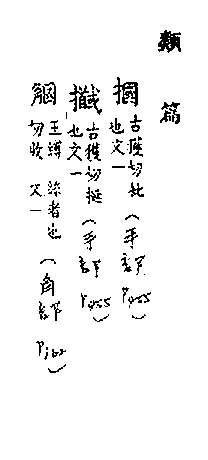 類篇
摑 古獲切批也文一(手部 P455)
古獲切挺也文一(手部 P455)
王縛切收 者也 文一(角部 P162)